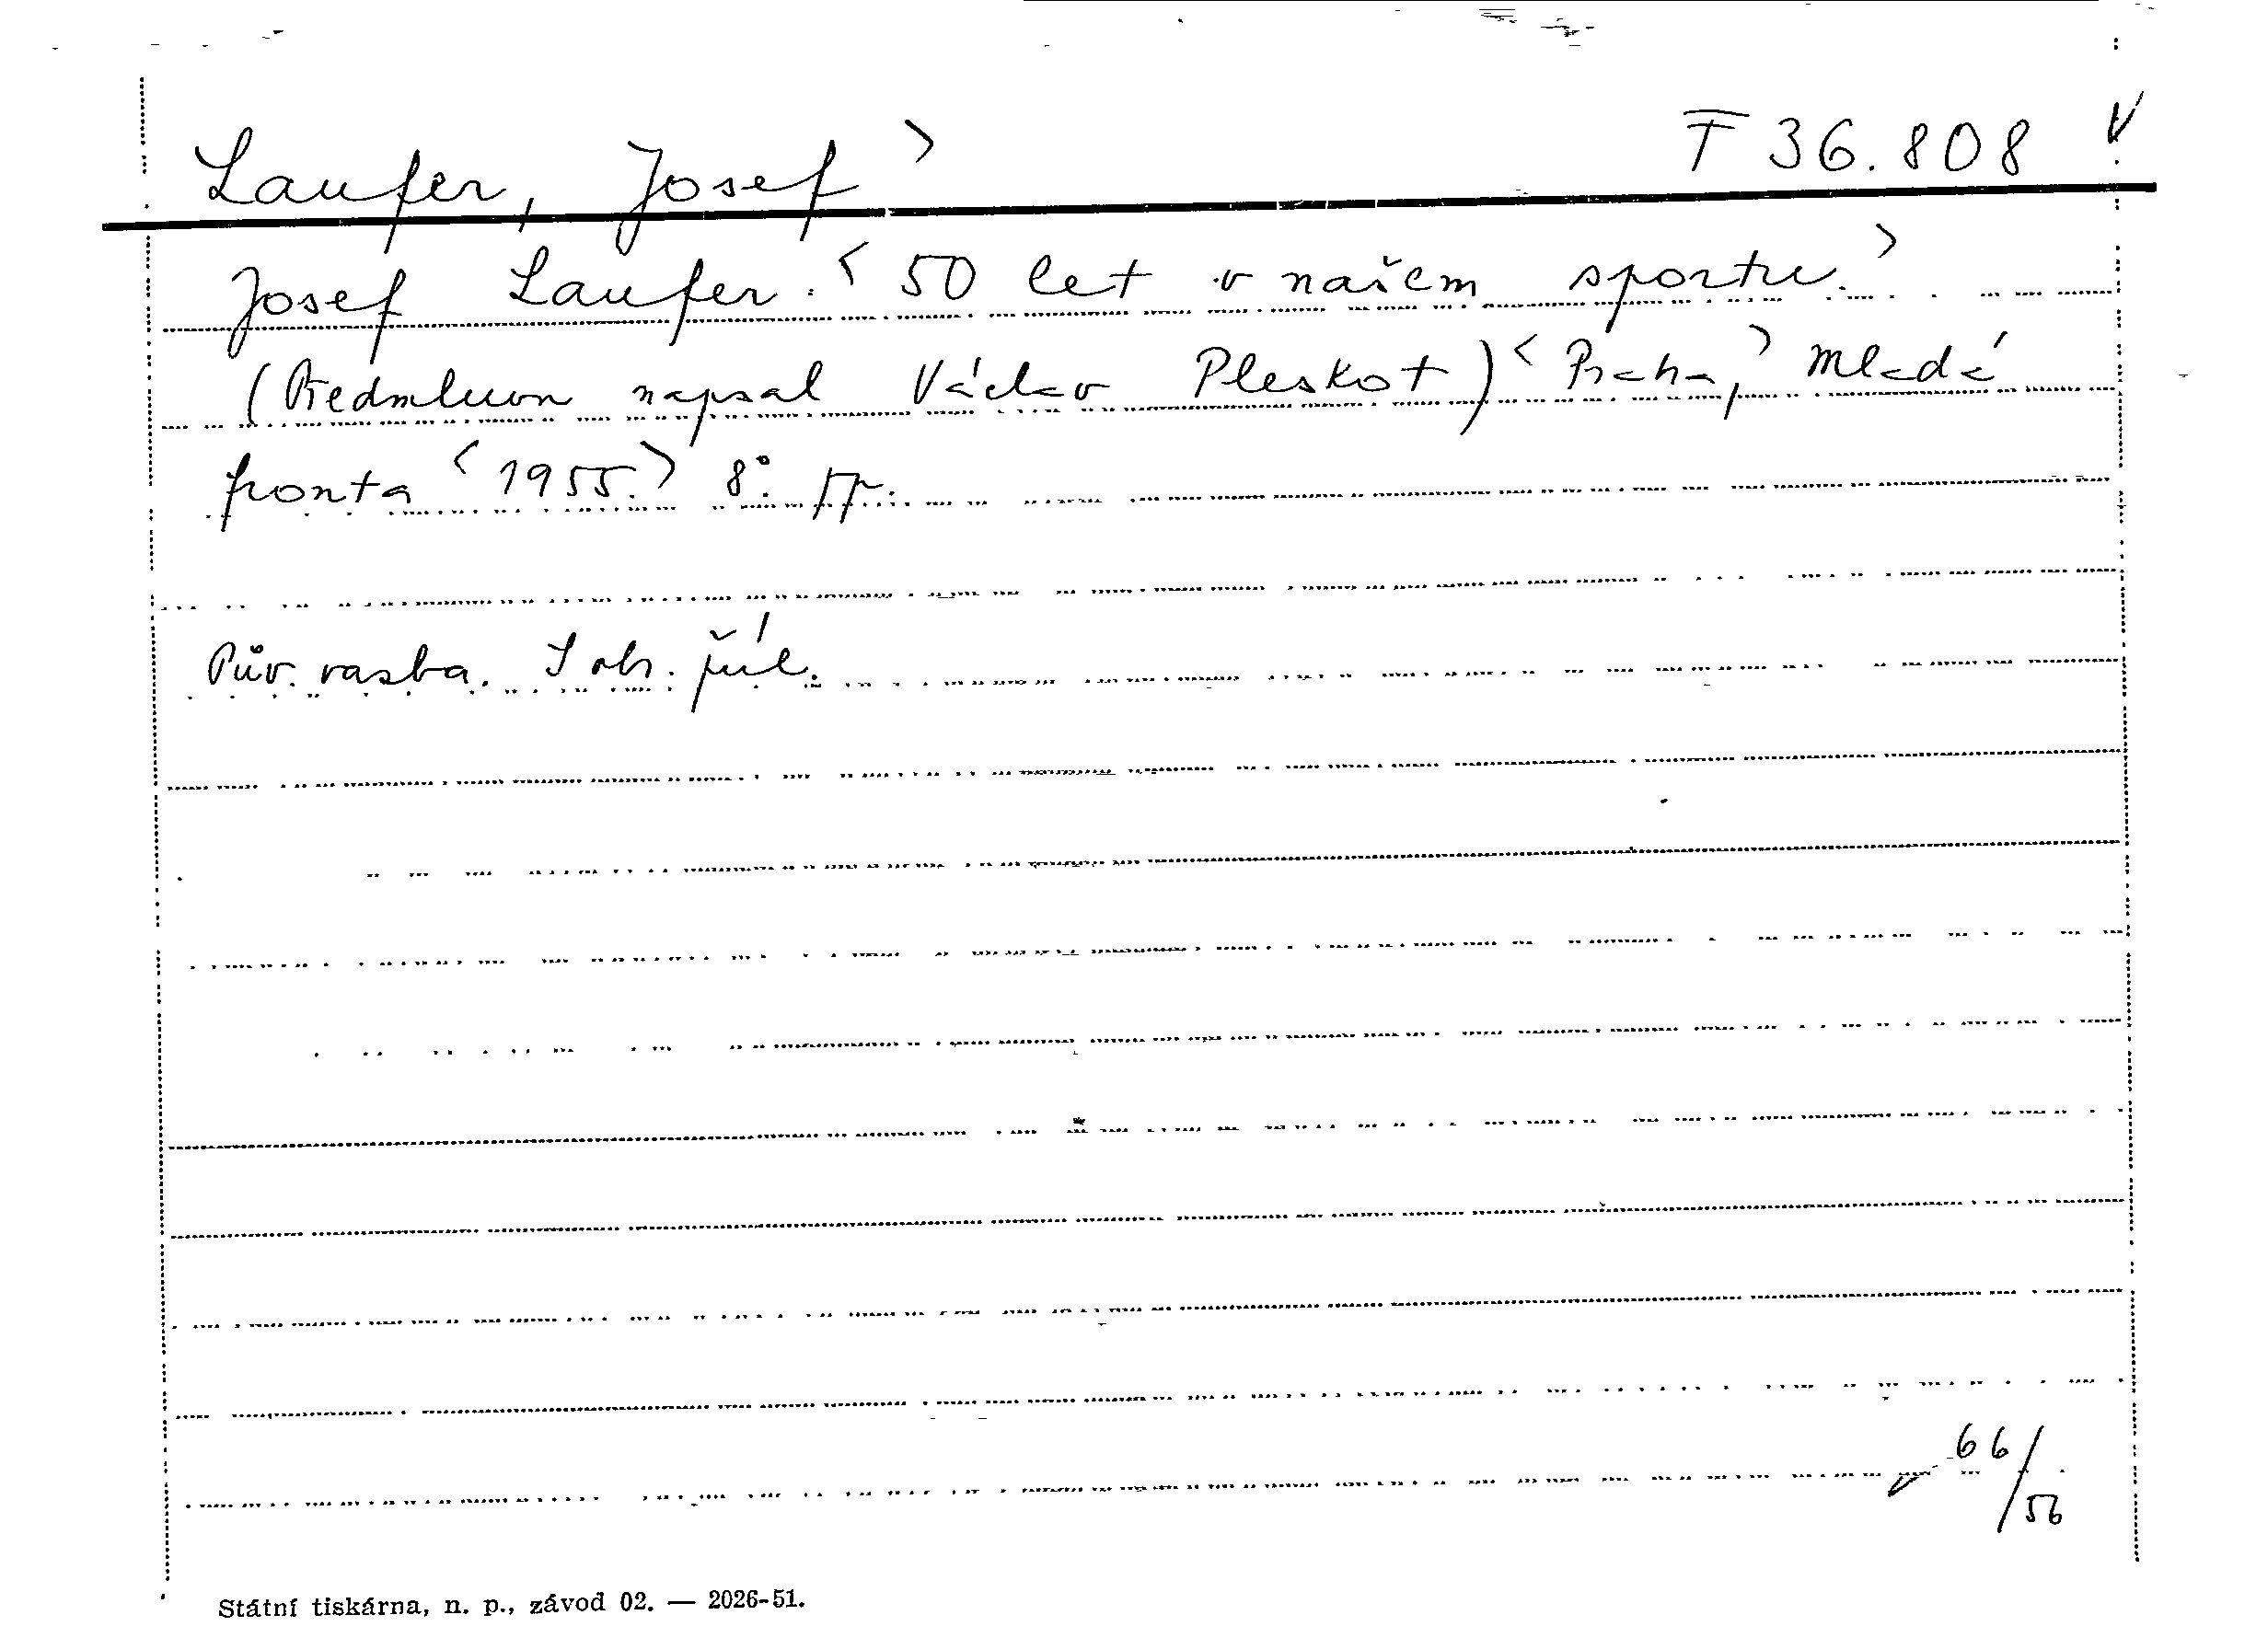 Laufer, Josef > F 36.808 V
Josef Laufer. < 50 let v našem sportu. >
(Předmluvu napsal Václav Pleskot) < Praha, > Mladá
fronta < 1955. > 8°.
Pův. vazba. S obr. příl.
66/56
Státní tiskárna, n. p., závod 02. — 2026-51.